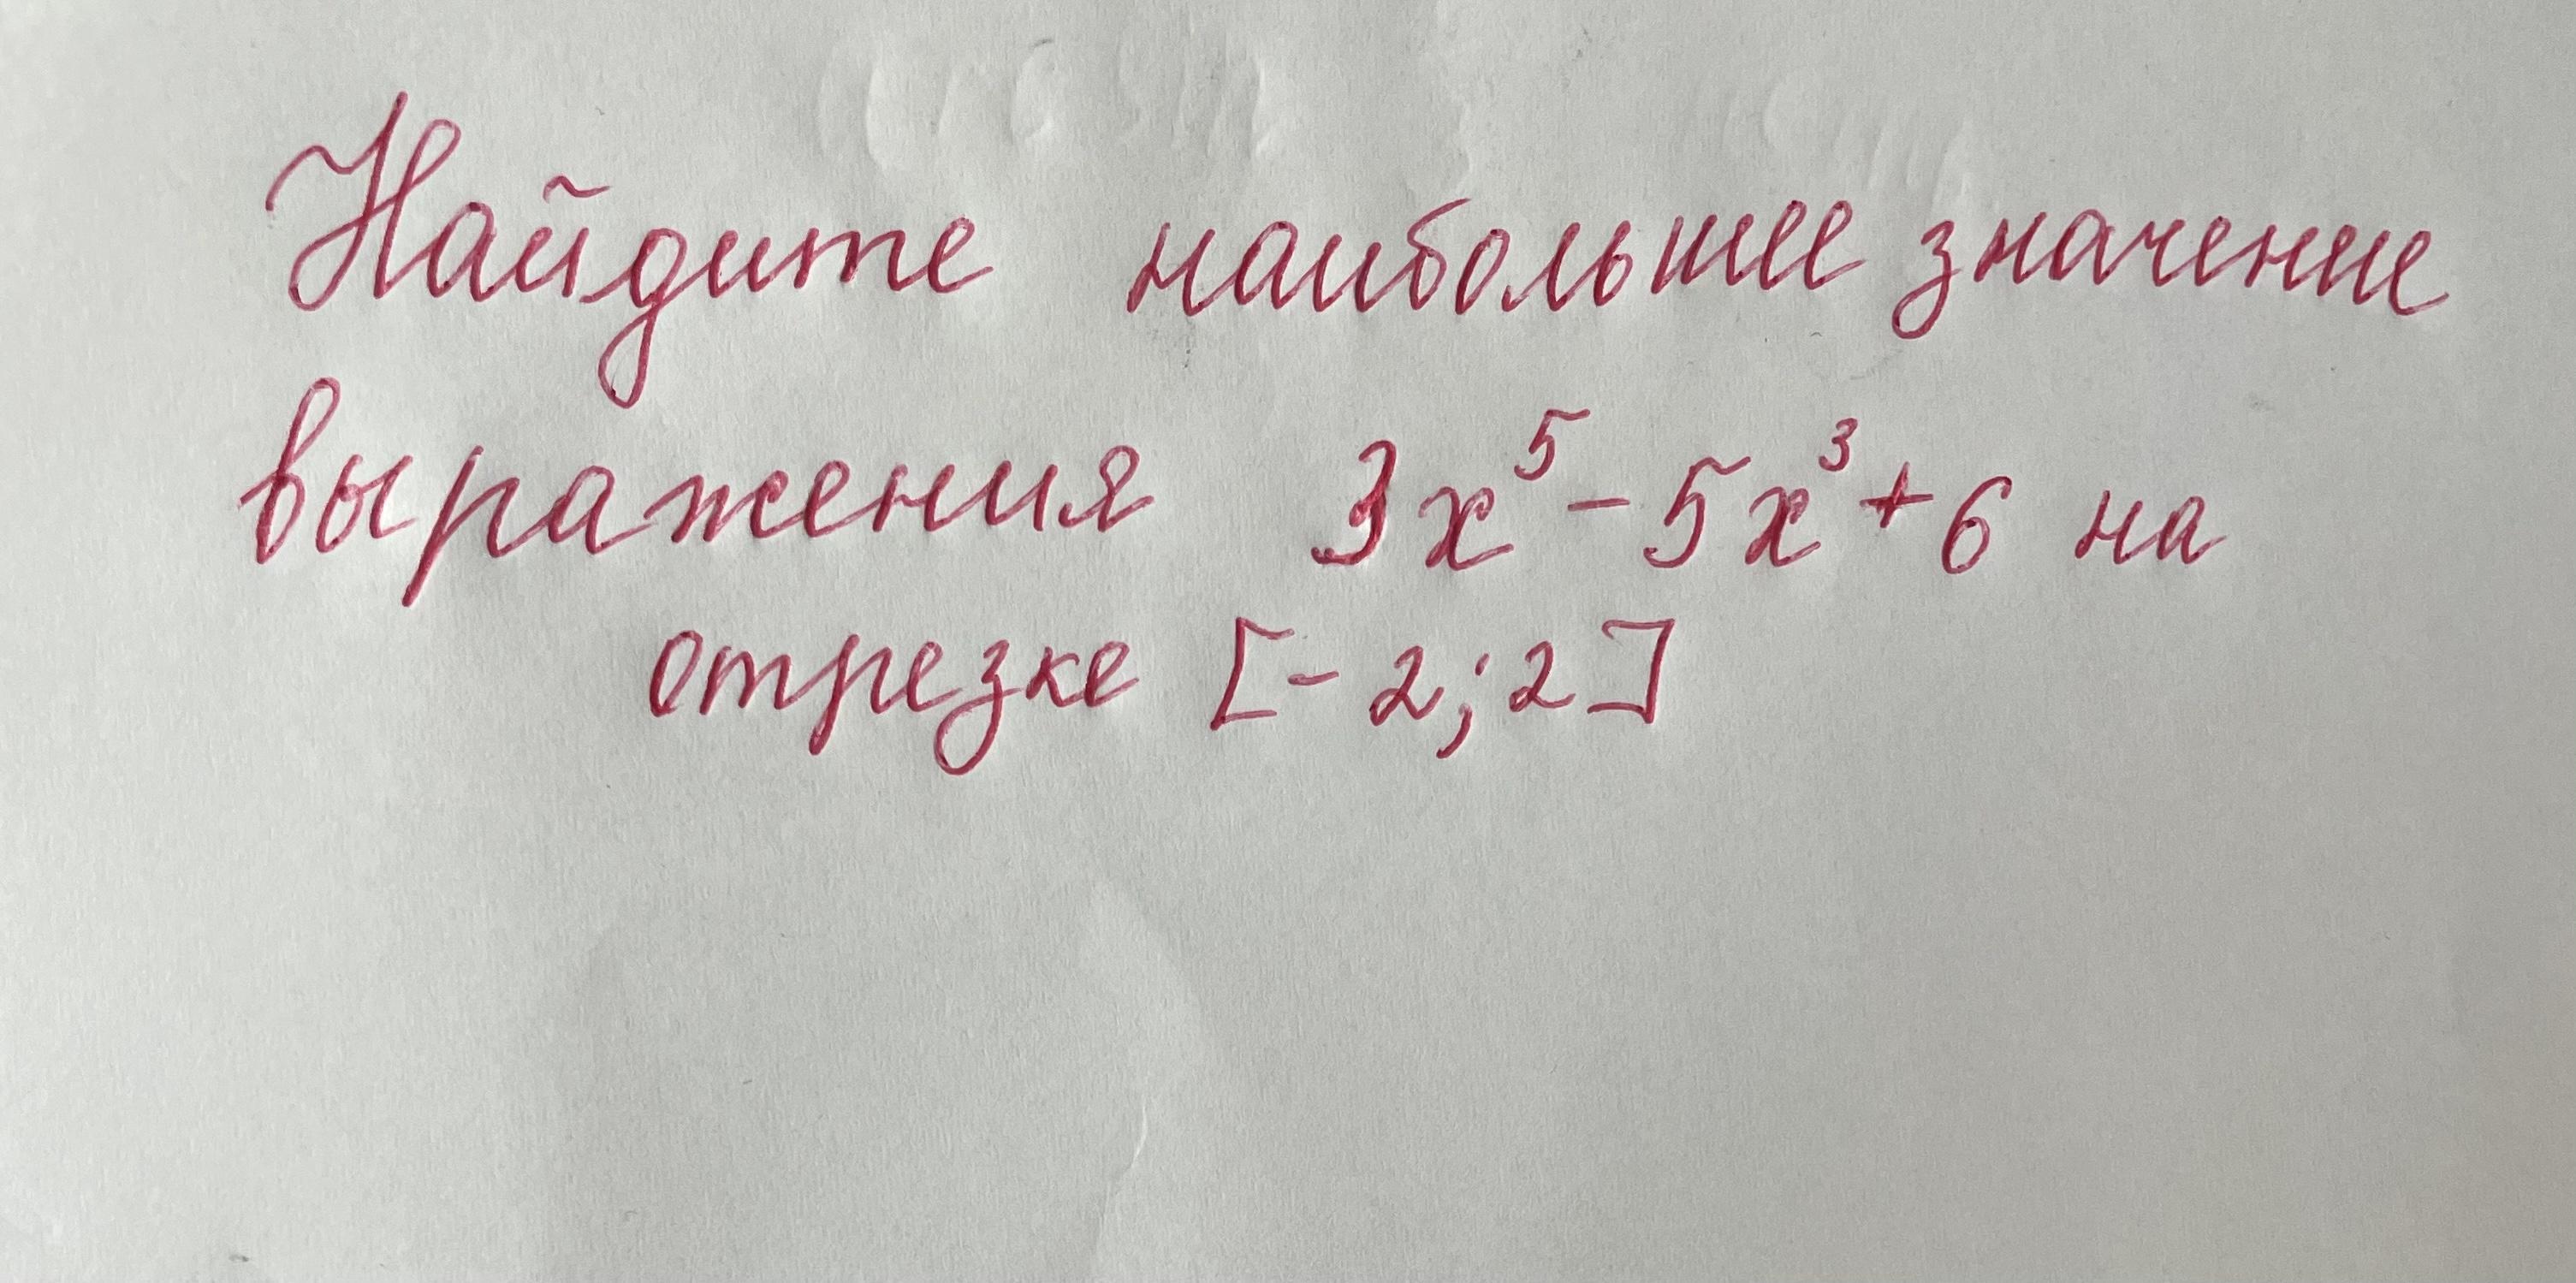 Найдите наибольшее значение
выражения 3x⁵-5x³+6 на
отрезке [-2;2]